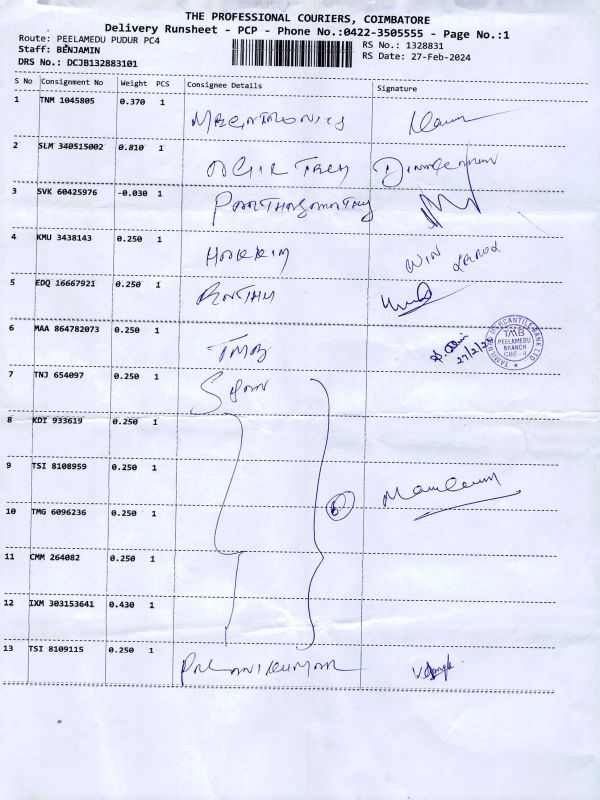 THE PROFESSIONAL COURIERS, COIMBATORE
Delivery Runsheet - PCP - Phone No.:0422-3505555 - Page No.:1
Route: PEELAMEDU PUDUR PC4
Staff: BENJAMIN
DRS No.: DCJB132883101
RS No.: 1328831
RS Date: 27-Feb-2024
S No Consignment No Weight PCS Consignee Details Signature
1 TNM 1045805 0.370 1
2 SLM 340515002 0.810 1
3 SVK 60425976 -0.030 1
4 KMU 3438143 0.250 1
5 EDQ 16667921 0.250 1
6 MAA 864782073 0.250 1 TMB 27/2/24
TAMILNAD MERCANTILE BANK LTD
TMB
PEELAMEDU
BRANCH
CBE - 4
7 TNJ 654097 0.250 1
8 KDI 933619 0.250 1
9 TSI 8108959 0.250 1
10 TMG 6096236 0.250 1 6
11 CMM 264082 0.250 1
12 IXM 303153641 0.430 1
13 TSI 8109115 0.250 1 Palanikumar